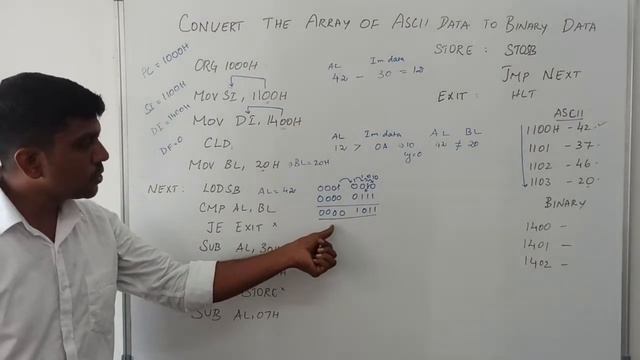 CONVERT THE ARRAY OF ASCII DATA TO BINARY DATA
PC = 1000H
ORG 1000H
SI = 1100H
MOV SI, 1100H
DI = 1400H
MOV DI, 1400H
DF = 0
CLD
MOV BL, 20H BL = 20H
NEXT: LODSB AL = 42
CMP AL, BL
JE EXIT ×
SUB AL, 30H
H
STORE ×
SUB AL, 07H
AL Im data
42 - 30 = 12
AL Im data AL BL
12 > 0A 42 ≠ 20
0000 0111
0000 1011
STORE: STOSB
JMP NEXT
EXIT: HLT
ASCII
1100H - 42
1101 - 37
1102 - 46
1103 - 20
BINARY
1400 -
1401 -
1402 -